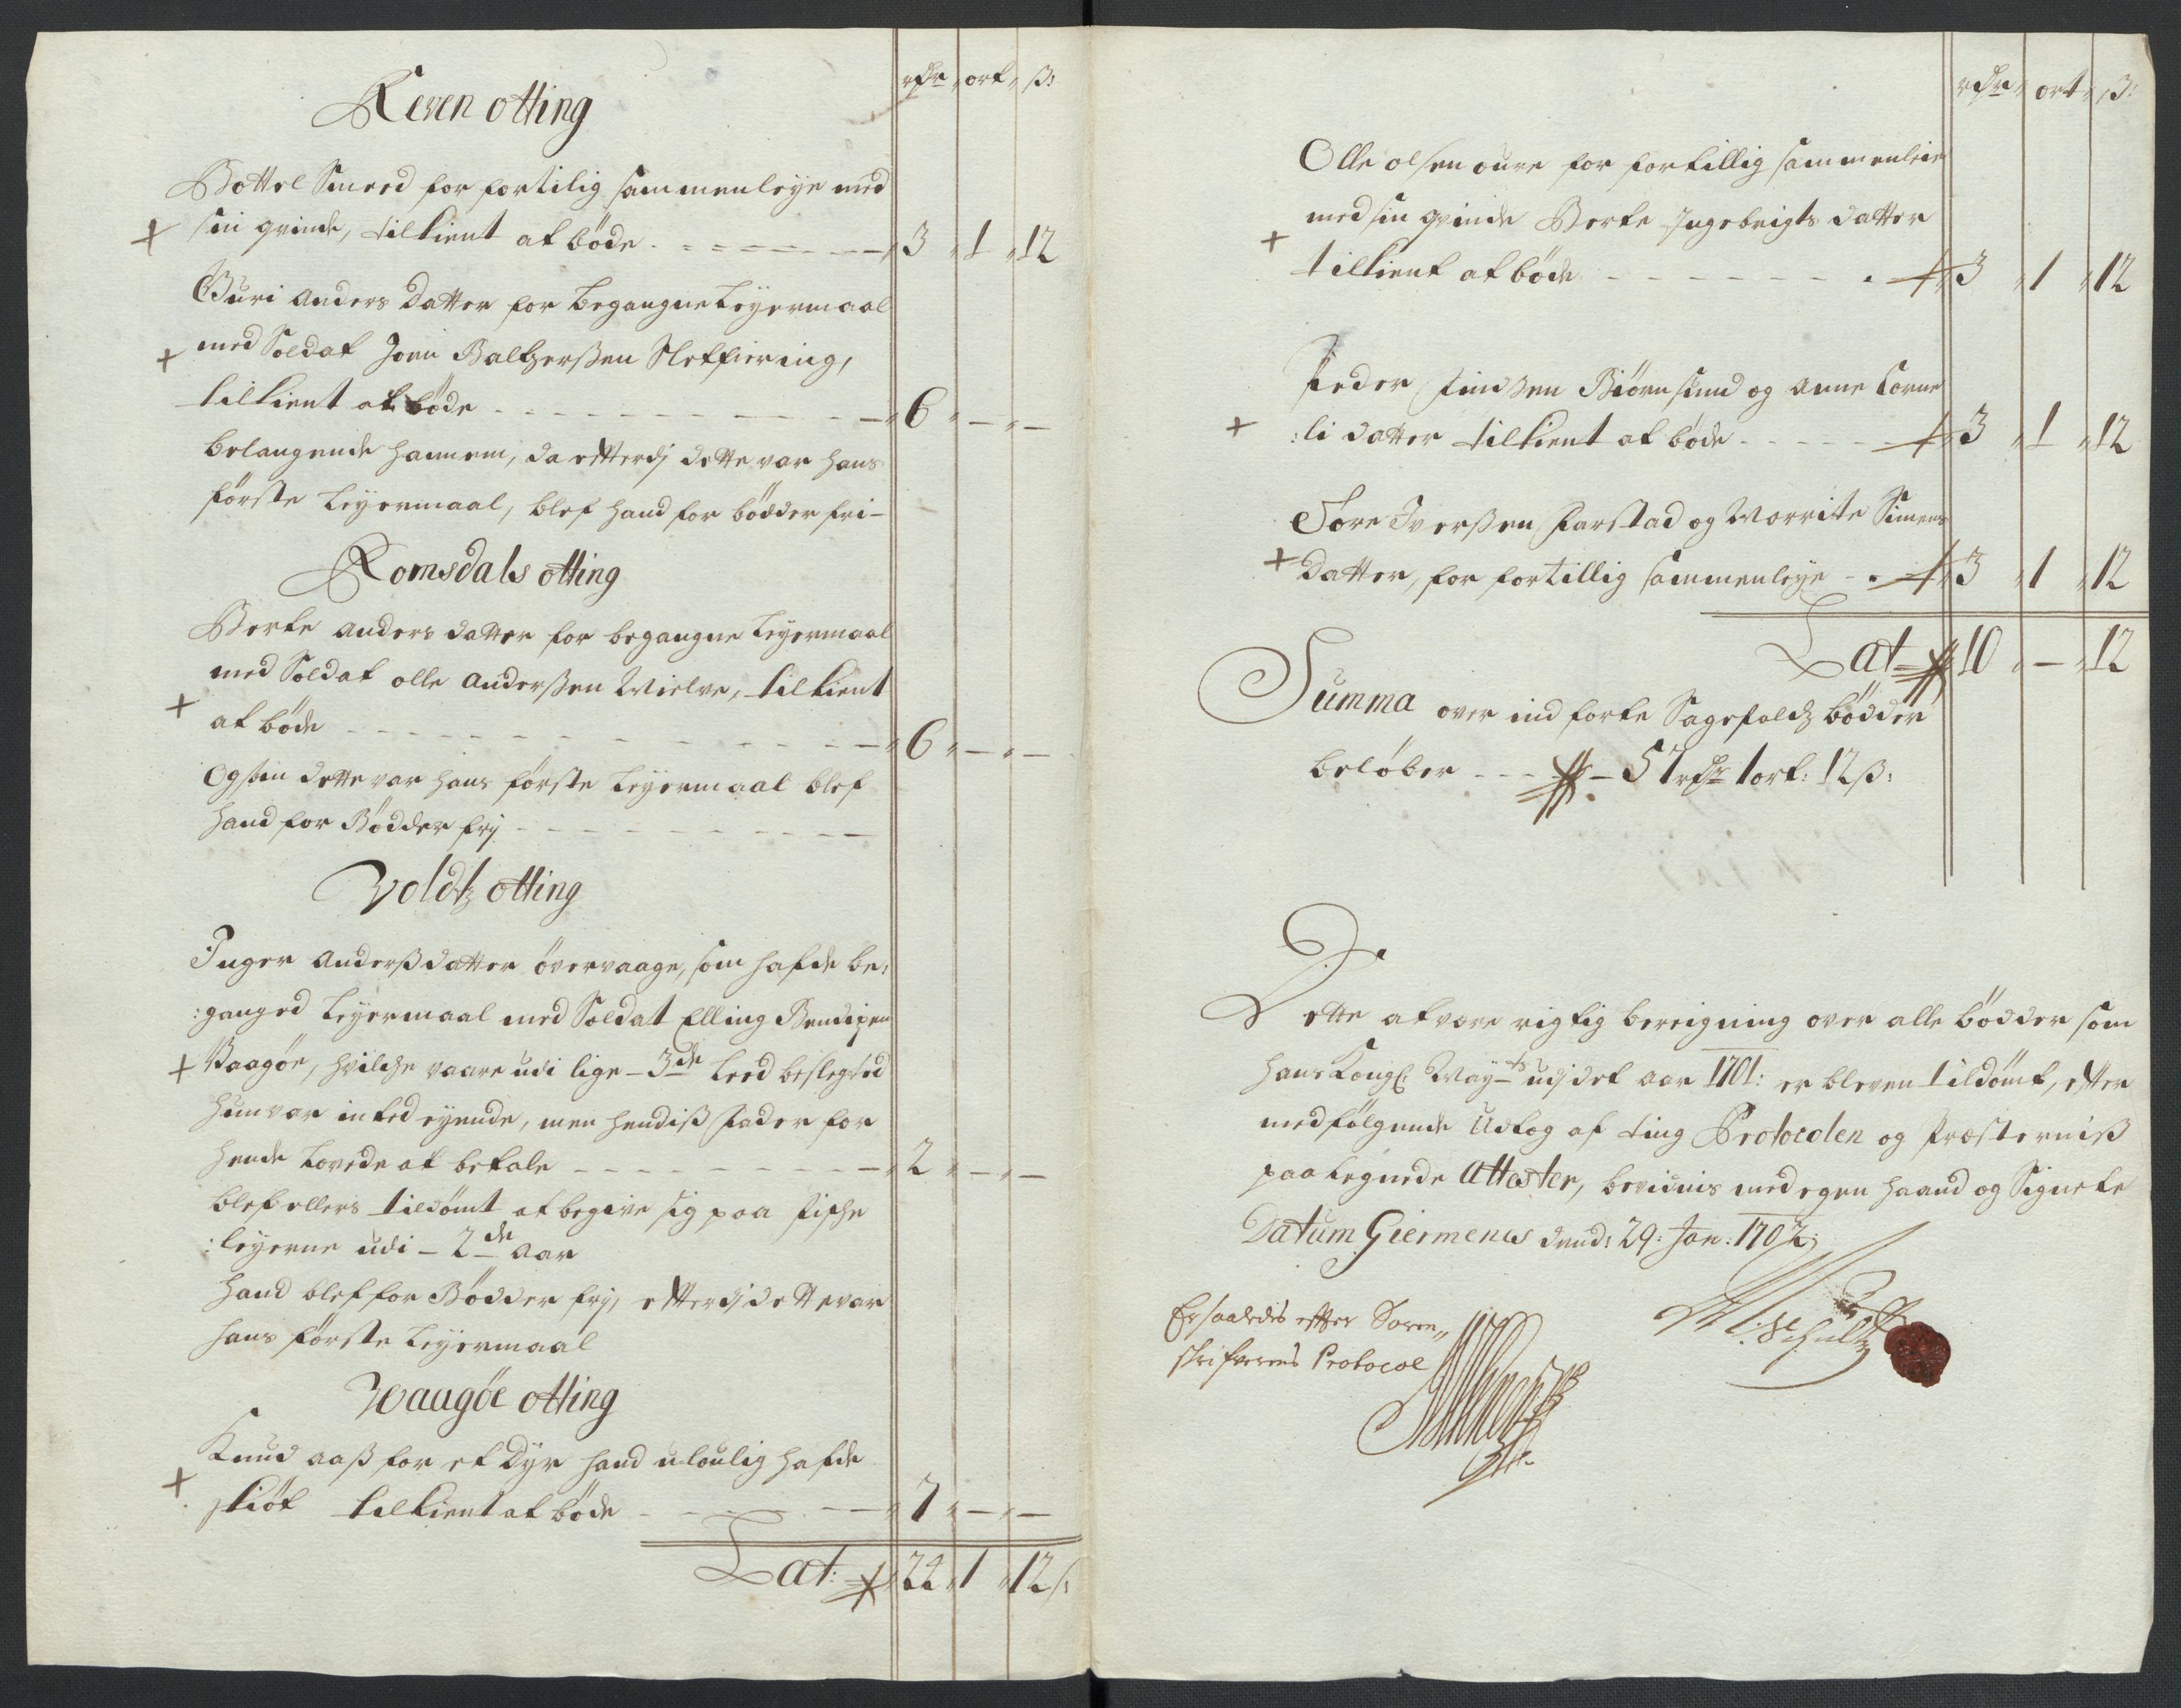 rdr ort ß:
Reven otting
Bottel Smeed for fortilig sammenleye med
sin qvinde, tilkient at böde 3 1 12
Guri Anders datter for begangne Leyermaal
med Soldat Joen Baltzerßen Sletfiering,
tilkient at böde 6 - -
belangende hannem, da efterdj dette var hans
förste Leyermaal, blef hand for bödder fri-
Romsdals otting
Berte Anders datter for begangne Leyermaal
med Soldat olle Anderßen Mielve, tilkient
at böde 6 - -
Og som dette var hans förste Leyermaal blef
hand for Bödder frj
Voldtz otting
Inger Anderßdatter övervaage, som hafde be:
:ganged Leyermaal med Soldat Elling Bendixen
Vaagöe, hvilche vaare udi lige - 3de Leed beslegted
hun var inted eyende, men hendiß fader for
hende lovede at betale 2 - -
blef ellers tildömt at begive sig paa fische
:leyerne udi - 2de aar
hand blef for Bödder frj, efterdj dette var
hans förste Leyermaal
Waagöe otting
Knud Aaß for et dyr hand uloulig hafde
skiöt tilkient at böde 7 - -
Lat: 24 1 12 ß:
rdr ort ß:
Olle olsen oure for fortillig sammenleie
med sin qvinde Berte Ingebrigts datter
tilkient at böde 3 1 12
Peder Findßen Biörnsund og Anne Corne
:li datter tilkient at böde 3 1 12
Tore Iverßen Harstad og Marrite Simens
datter, for fortillig sammenleye 3 1 12
Lat 10 - 12
Summa over ind forte Sagefaldz bödder
belöber - - - 57 rdr 1 ort: 12 ß:
Dette at være rigtig bereigning over alle bödder som
hans Kongl: May-ts udj det aar 1701: er bleven tildömt, efter
medfölgende Udtog af ting Protocolen og Præsterniß
paategnede Attester, bevidnis med egen haand og Signete
Datum Giermenes dend: 29: Jan: 1702:
Er saaledis effter Soren„
skrifverens Protocol
M: Schultz